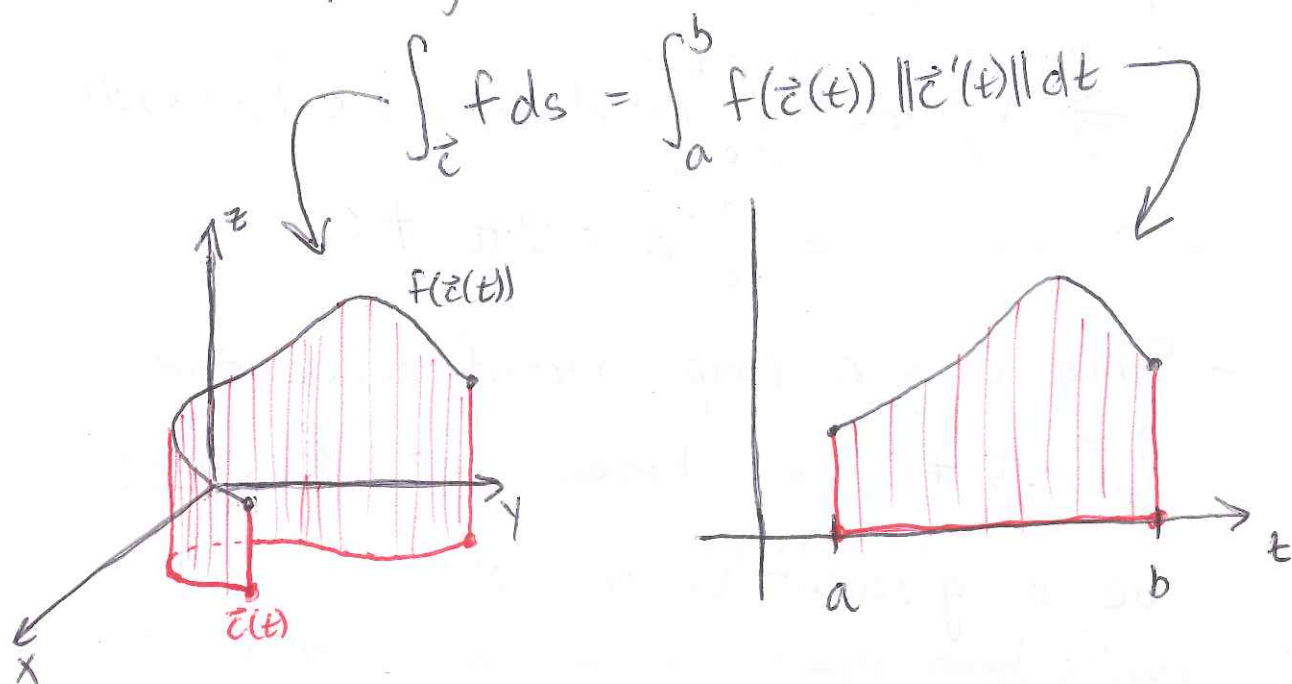 ∫_c⃗ f ds = ∫_a^b f(c⃗(t)) ||c⃗'(t)|| dt
z
f(c⃗(t))
y
x
c⃗(t)
a
b
t